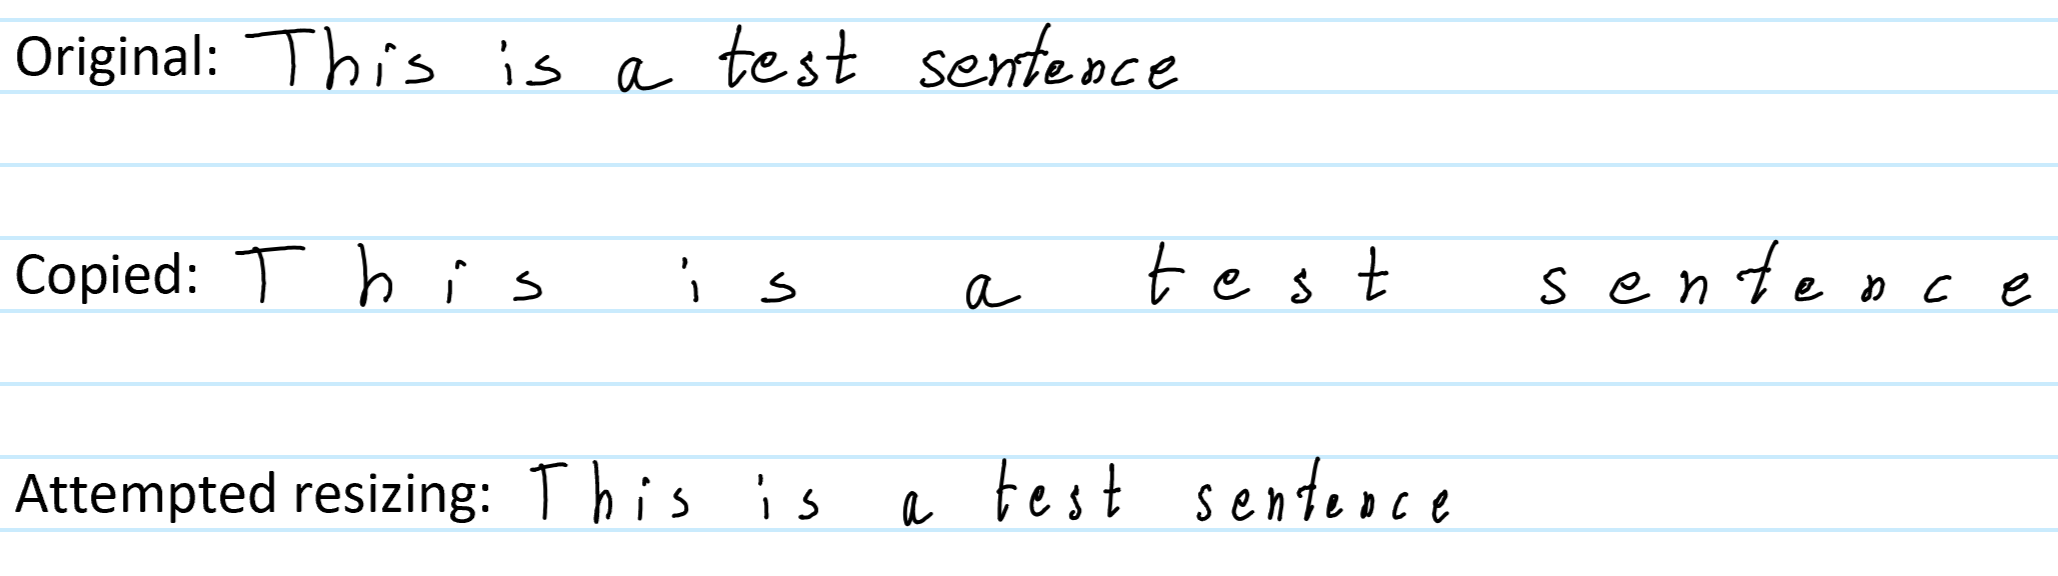 Original: This is a test sentence
Copied: This is a test sentence
Attempted resizing: This is a test sentence